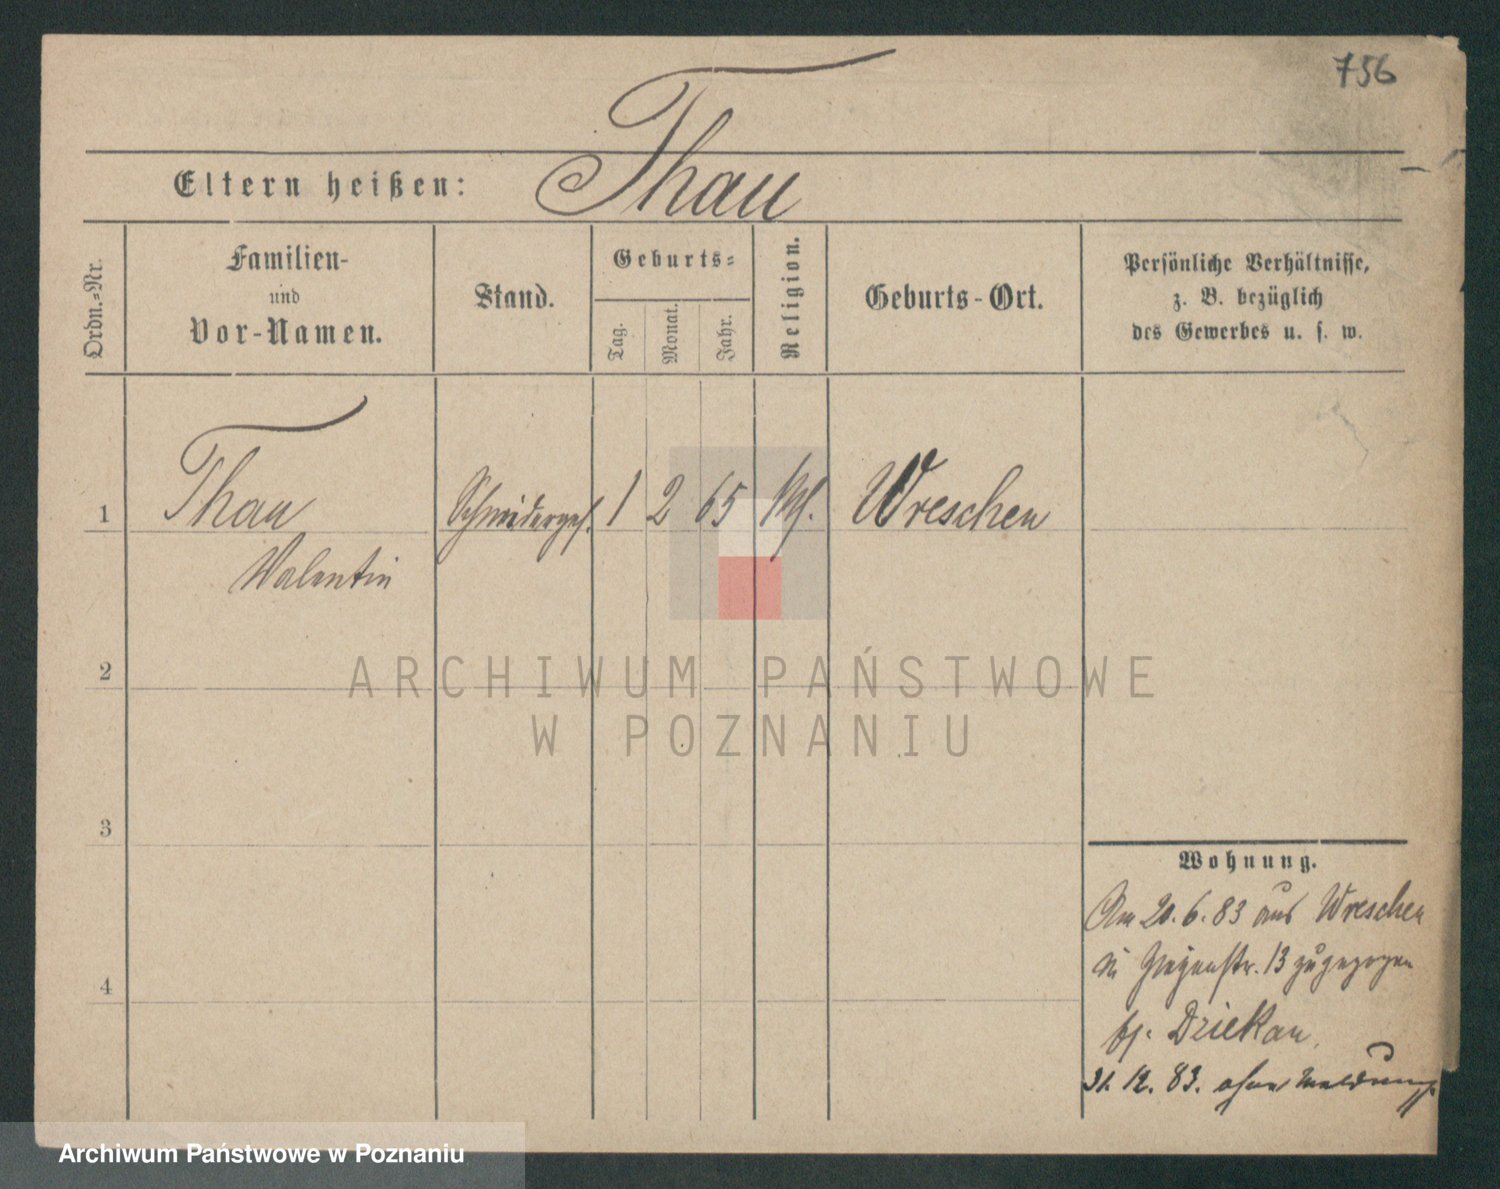 756
Thau
Eltern heißen:
Ordn.-Nr.
Familien-
und
Vor-Namen.
Stand.
Geburts-
Tag.
Monat.
Jahr.
Religion.
Geburts-Ort.
Persönliche Verhältnisse,
z. B. bezüglich
des Gewerbes u. s. w.
1 Thau Schneiderges. 1 2 65 kth. Wreschen
Valentin
2
3
4
Wohnung.
Am 20.6.83 aus Wreschen
in 13 zugezogen
bj. Dziekan.
31. 12. 83. ohne Meldung
ARCHIWUM PAŃSTWOWE
W POZNANIU
Archiwum Państwowe w Poznaniu